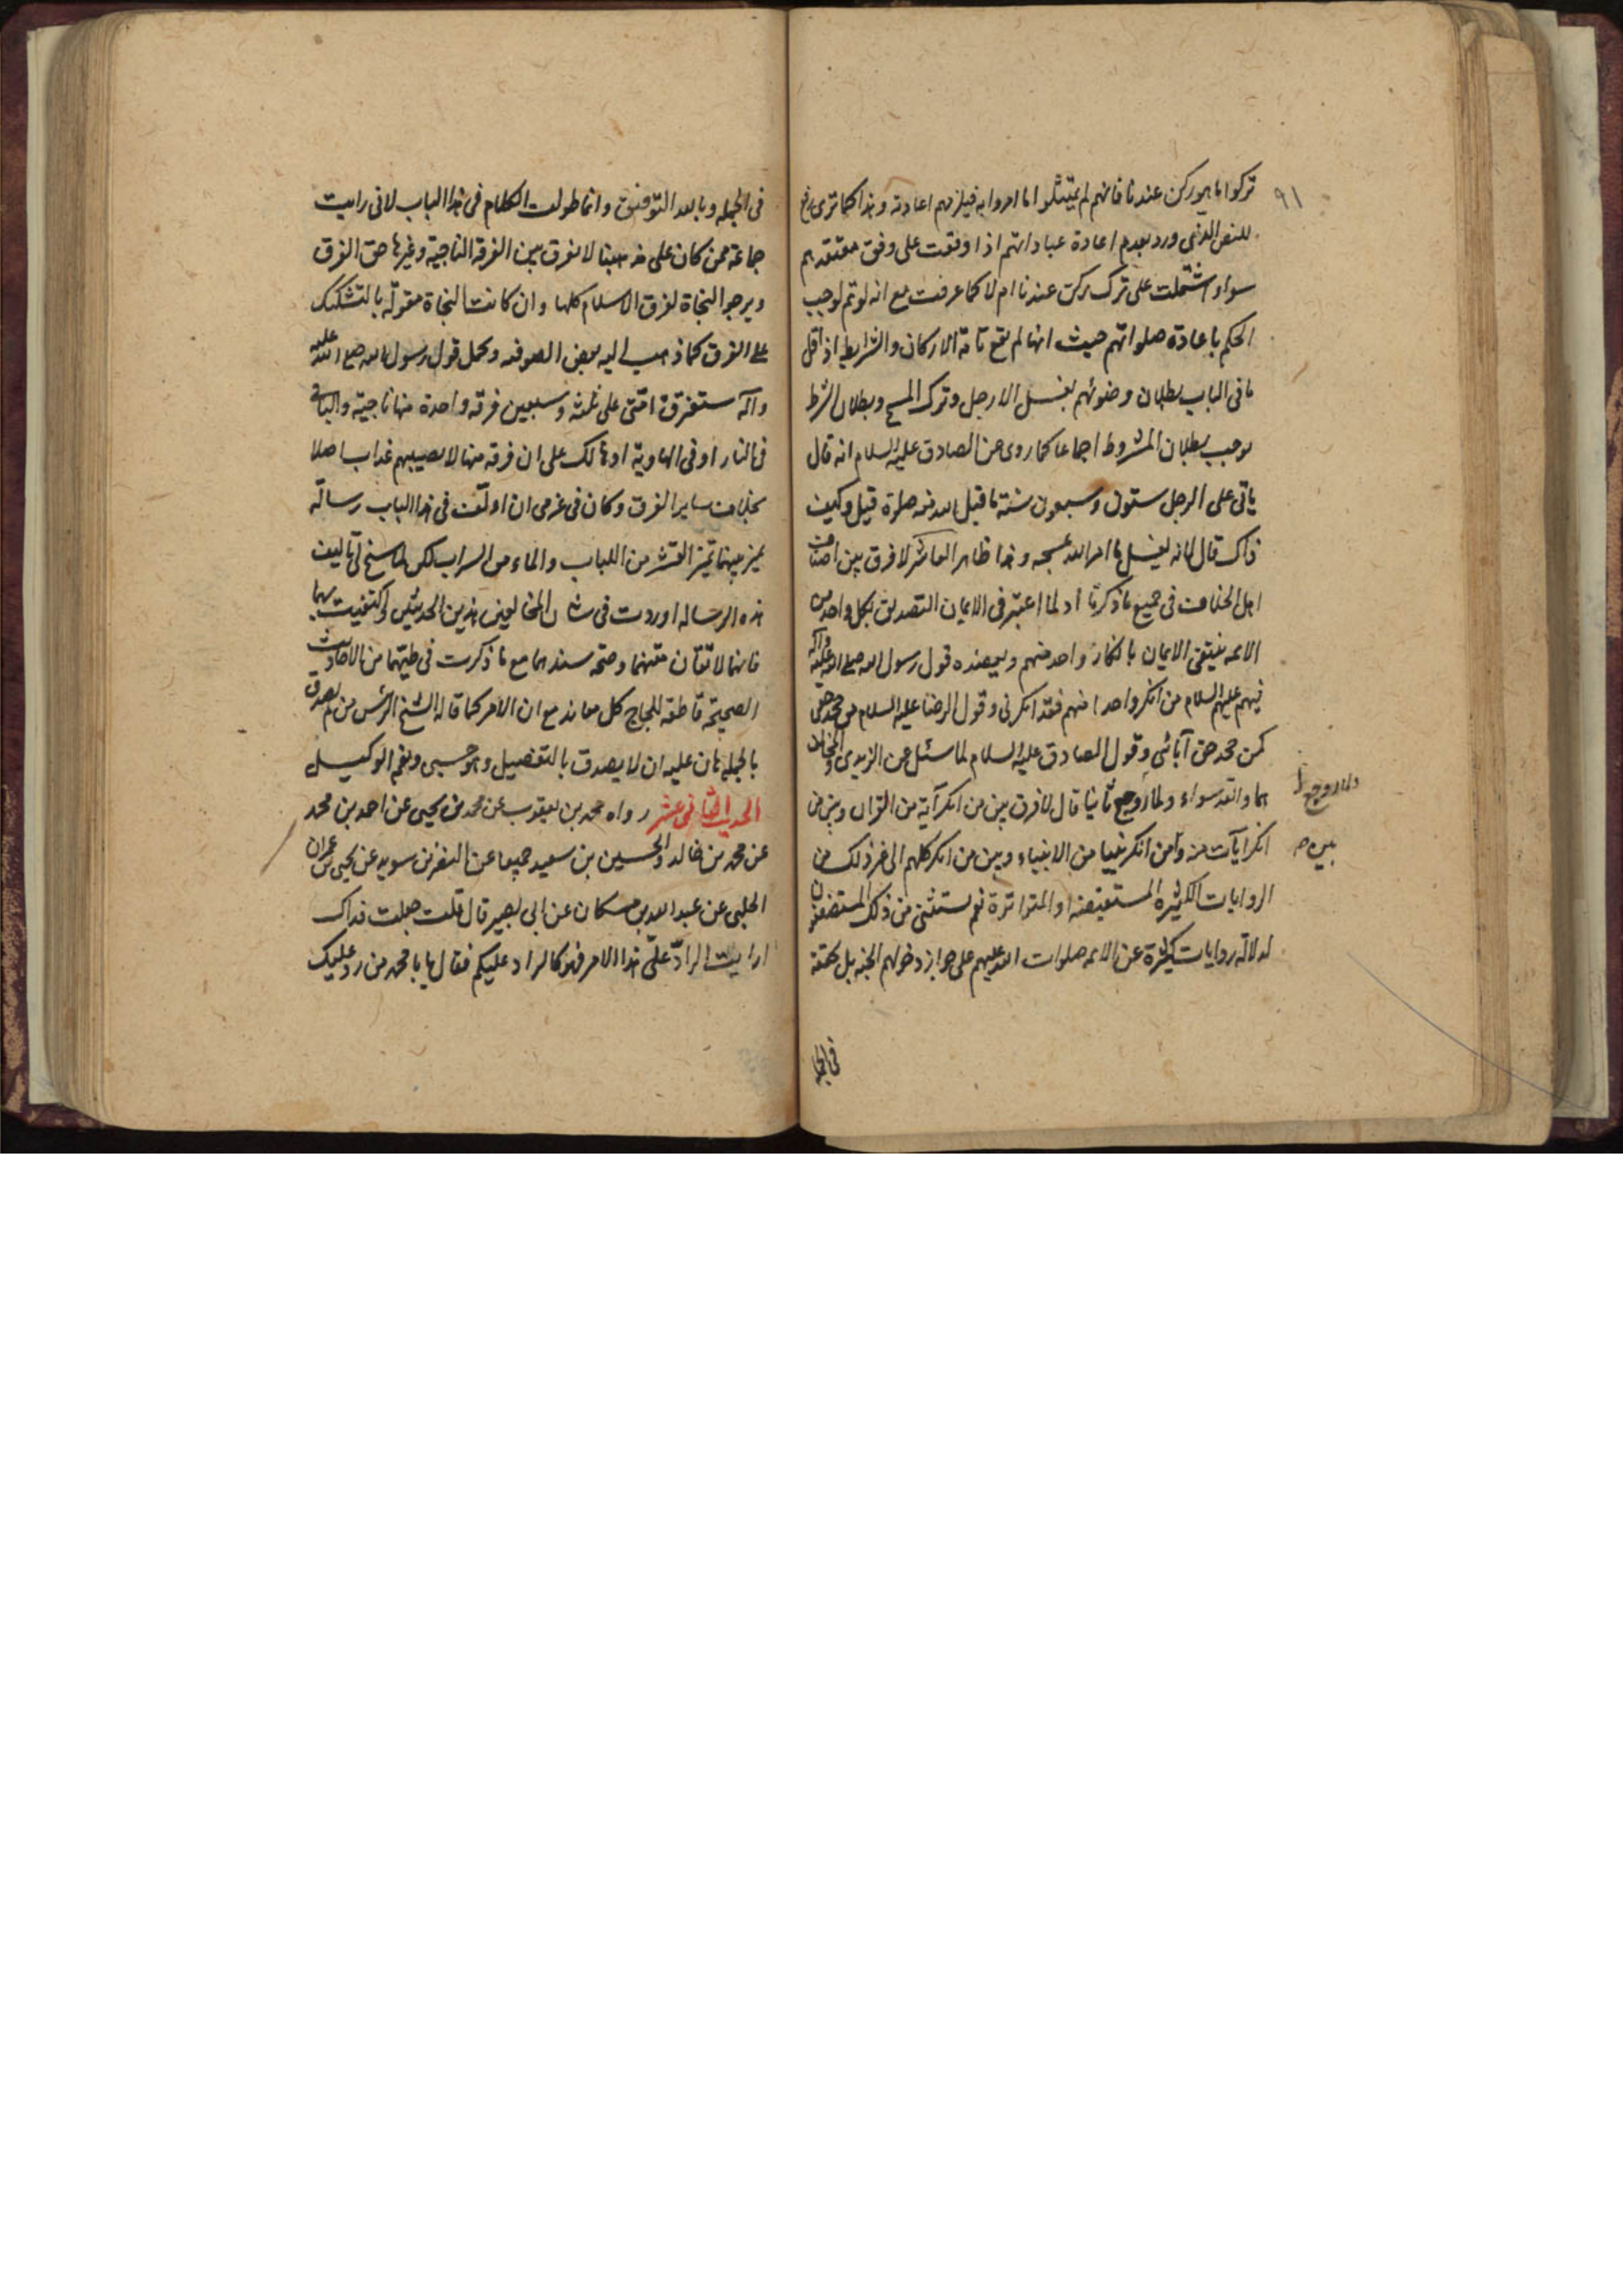 ٩١
تركوا ما هو ركن عندنا فانهم لم يمتثلوا ما امروا به فيلزمهم اعادته وهذا كما ترى
للنص الذي ورد بعدم اعادة عباداتهم اذا وقعت على وفق معتقدهم
سواء اشتملت على ترك ركن عندنا ام لا كما عرفت مع انه لو تم لوجب
الحكم باعادة صلواتهم حيث انها لم تقع تامة الاركان والشرايط اذ اقل
ما في الباب بطلان وضوئهم بغسل الارجل وترك المسح وبطلان الشرط
يوجب بطلان المشروط اجماعا كما روى عن الصادق عليه السلام انه قال
ياتي على الرجل ستون وسبعون سنة ما قبل الله منه صلوة قيل وكيف
ذاك قال لانه يغسل ما امر الله بمسحه وهذا ظاهر العاشر لا فرق بين اصناف
اهل الخلاف في جميع ما ذكرنا اذ لما اعتبر في الايمان التصديق بكل واحد من
الائمه فينتفي الايمان بانكار واحد منهم ويعضده قول رسول الله صلى الله عليه وآله
فيهم عليهم السلام من انكر واحدا منهم فقد انكرني وقول الرضا عليه السلام من جحد حقي
كمن جحد حق آبائي وقول الصادق عليه السلام لما سئل عن الزيدي والمخالف
هما والله سواء ولما روجع ثانيا قال لا فرق بين من انكر آية من القران وبين من
انكر آيات منه ومن انكر نبيا من الانبياء وبين من انكر كلهم الى غير ذلك من
الروايات الكثيرة المستفيضه او المتواترة نعم يستثنى من ذلك المستضعفون
لدلالة روايات كثيرة عن الائمه صلوات الله عليهم على جواز دخولهم الجنه بل تحققه
في الجملة
في الجمله وبالله التوفيق وانما طولت الكلام في هذا الباب لاني رايت
جماعة ممن كان على مذهبنا لا يفرق بين الفرقه الناجية وغيرها حق الفرق
ويرجو النجاة لفرق الاسلام كلها وان كانت النجاة مقولة بالتشكيك
على الفرق كما ذهب اليه بعض الصوفيه وحمل قول رسول الله صلى الله عليه
وآله ستفترق امتي على ثلثه وسبعين فرقه واحدة منها ناجية والباقي
في النار او في الهاوية او هالك على ان فرقه منها لا يصيبهم عذاب اصلا
بخلاف ساير الفرق وكان في عزمي ان اولّف في هذا الباب رسالة
يميز بينهما تميز القشر من اللباب والماء من السراب لكن لما سنح لي تاليف
هذه الرساله اوردت في شان المخالفين هذين الحديثين واكتفيت بهما
فانهما لاتقان متنهما وصحة سندهما مع ما ذكرت في طيهما من الاحاديث
الصحيحة قاطعة للجاج كل معاند مع ان الامر كما قاله الشيخ الرئيس من لم يصدق
بالجمله هان عليه ان لا يصدق بالتفصيل وهو حسبي ونعم الوكيل
الحديث الثاني عشر رواه محمد بن يعقوب عن محمد بن يحيى عن احمد بن محمد
عن محمد بن خالد والحسين بن سعيد جميعا عن النضر بن سويد عن يحيى بن عمران
الحلبي عن عبد الله بن مسكان عن ابي بصير قال قلت جعلت فداك
ارايت الرادّ علىّ هذا الامر فهو كالراد عليكم فقال يا با محمد من رد عليك